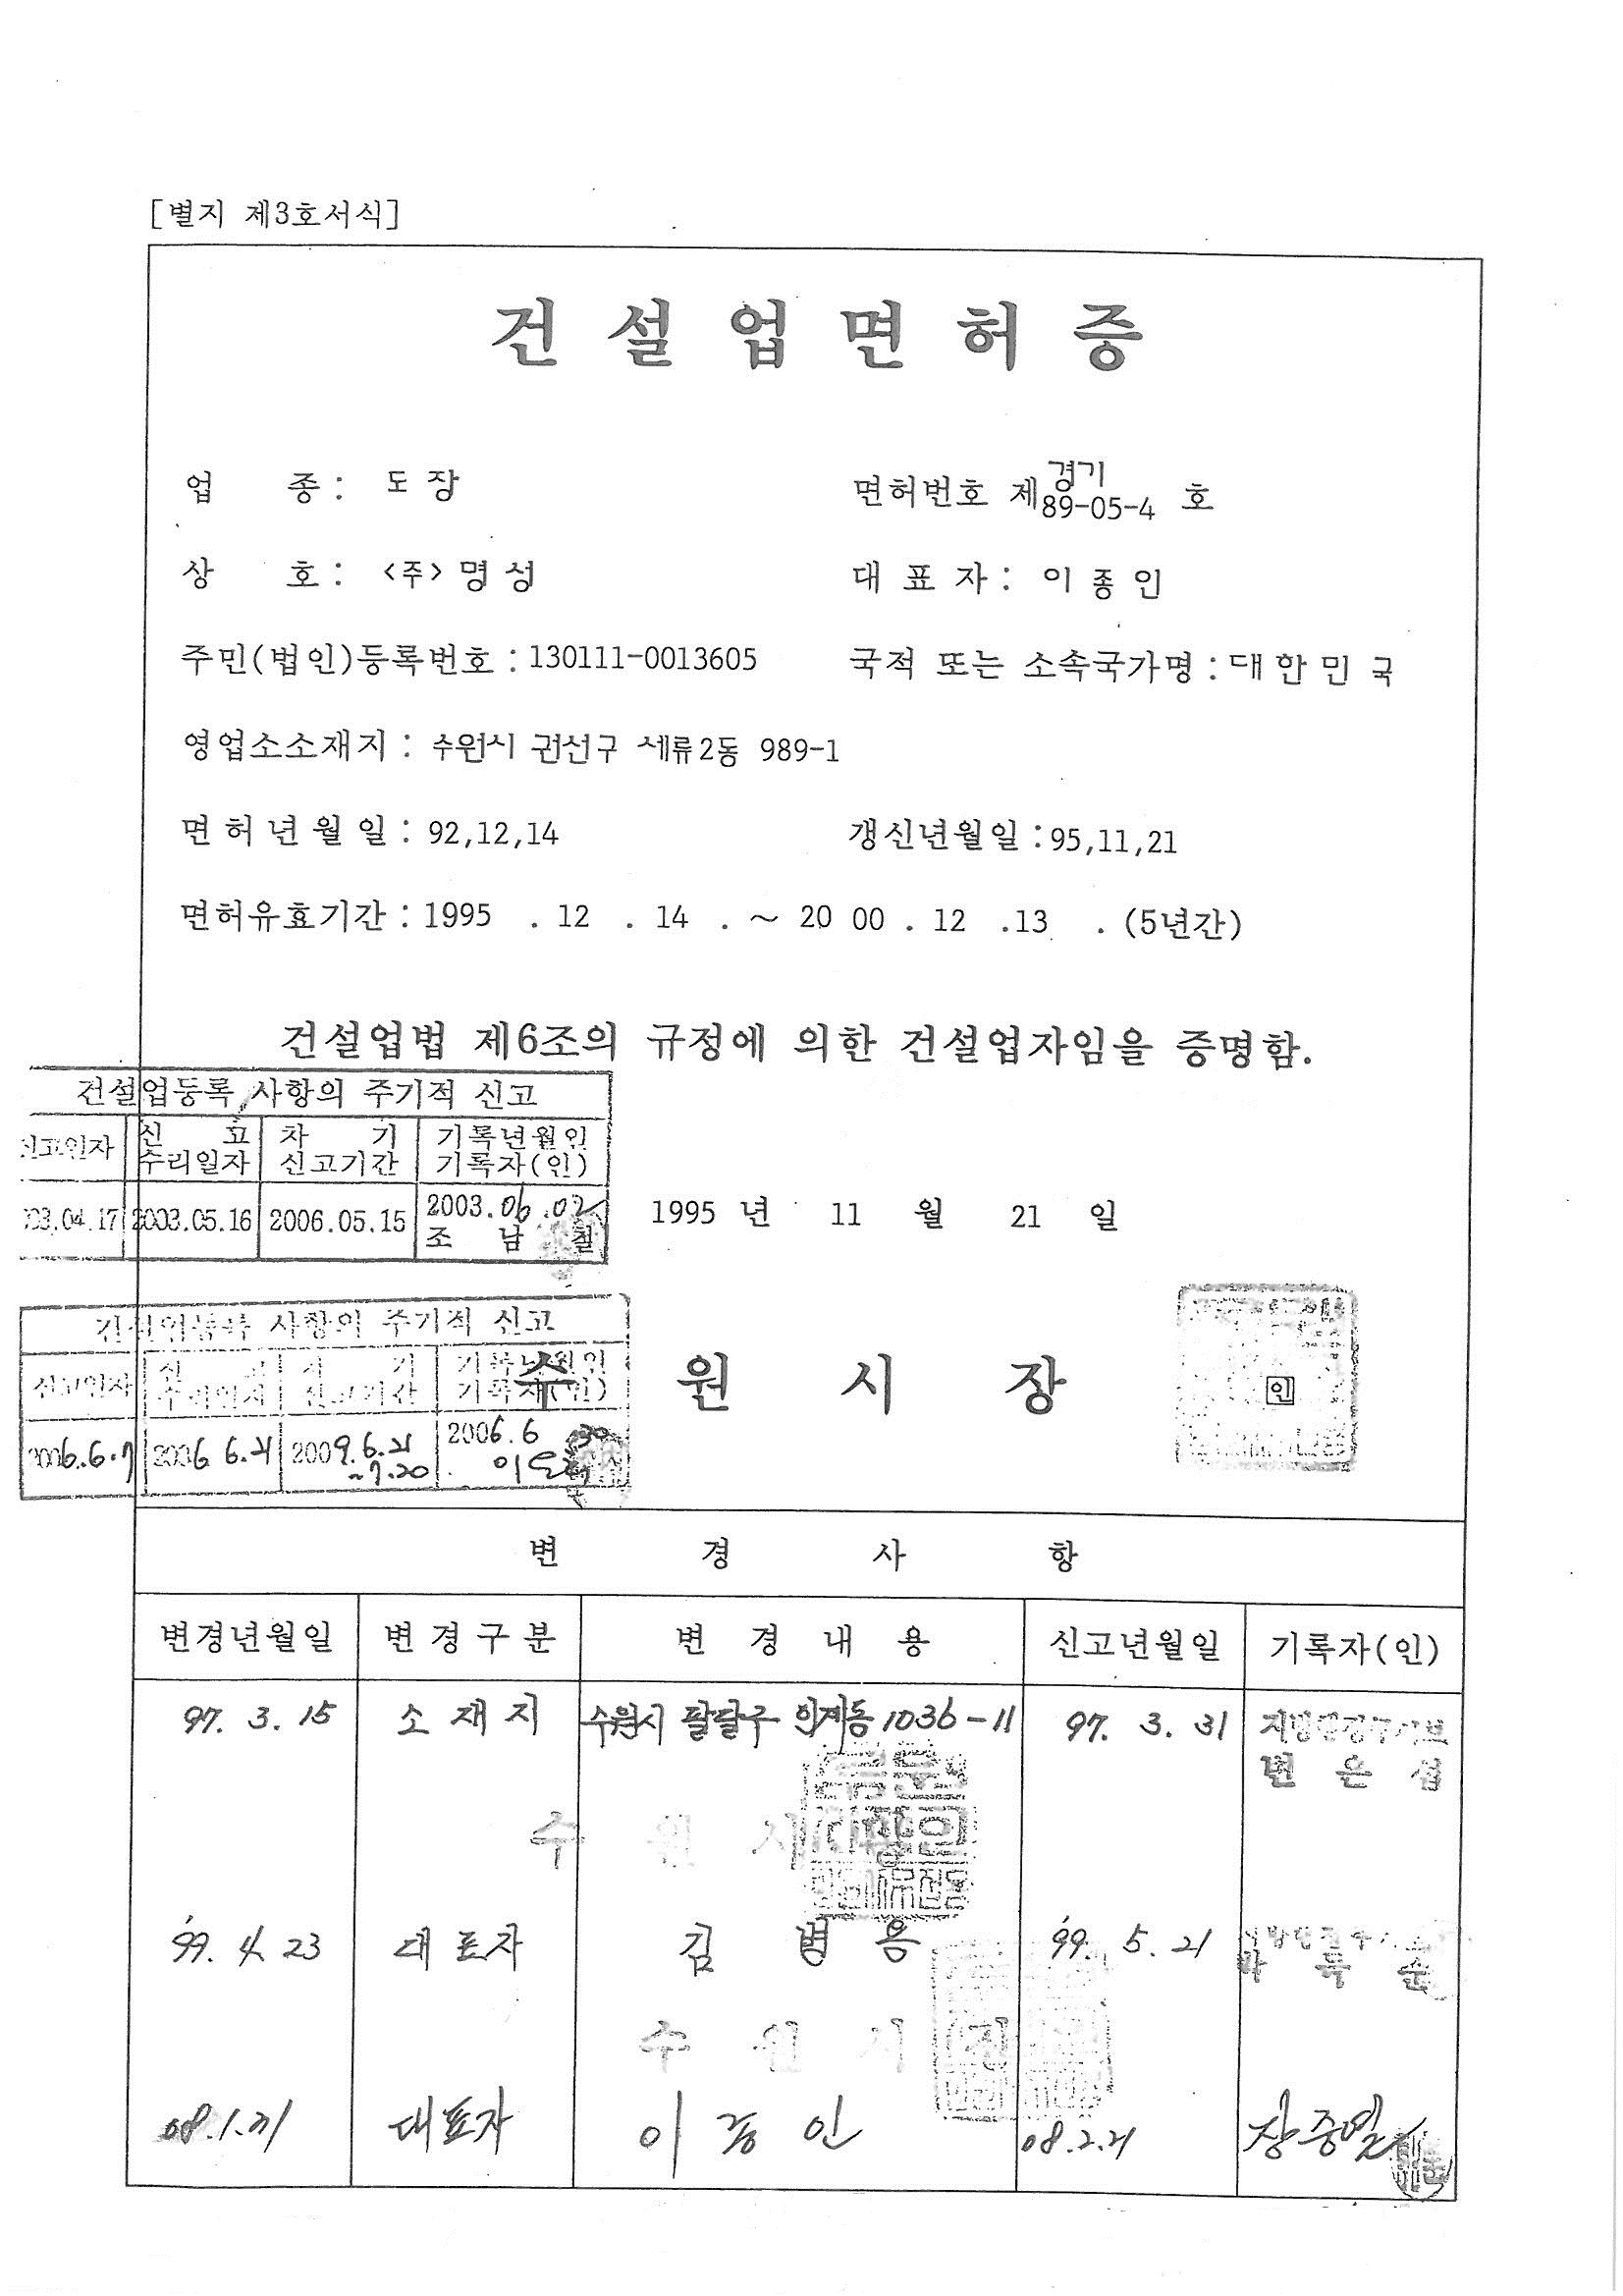 [별지 제3호서식]
건 설 업 면 허 증
업 종 : 도 장
면허번호 제 경기 89-05-4 호
상 호 : <주> 명 성
대 표 자 : 이 종 인
주민(법인)등록번호 : 130111-0013605
국적 또는 소속국가명 : 대 한 민 국
영업소소재지 : 수원시 권선구 세류2동 989-1
면 허 년 월 일 : 92,12,14
갱신년월일 : 95,11,21
면허유효기간 : 1995 . 12 . 14 . ~ 20 00 . 12 .13 . (5년간)
건설업법 제6조의 규정에 의한 건설업자임을 증명함.
건설업등록 사항의 주기적 신고
신고일자 신 고 수리일자 차 기 신고기간 기록년월인 기록자(인)
03.04.17 2003.05.16 2006.05.15 2003.06.02
조 남 철
1995 년 11 월 21 일
건설업등록 사항의 주기적 신고
신고일자 신 고 수리일자 차 기 신고기간 기록년월인 기록자(인)
2006.6.7 2006 6.21 2009.6.21 ~7.20 2006.6 30
수 원 시 장
인
변 경 사 항
변경년월일 변 경 구 분 변 경 내 용 신고년월일 기록자(인)
97. 3. 15 소 재 지 수원시 팔달구 의계동 1036-11 97. 3. 31
변 은 섭
수 원 시 장
'99. 4. 23 대 표 자 김 병 용 '99. 5. 21
수 원 시 장
08.1.21 대표자 이 종 인 08.2.21 장중일